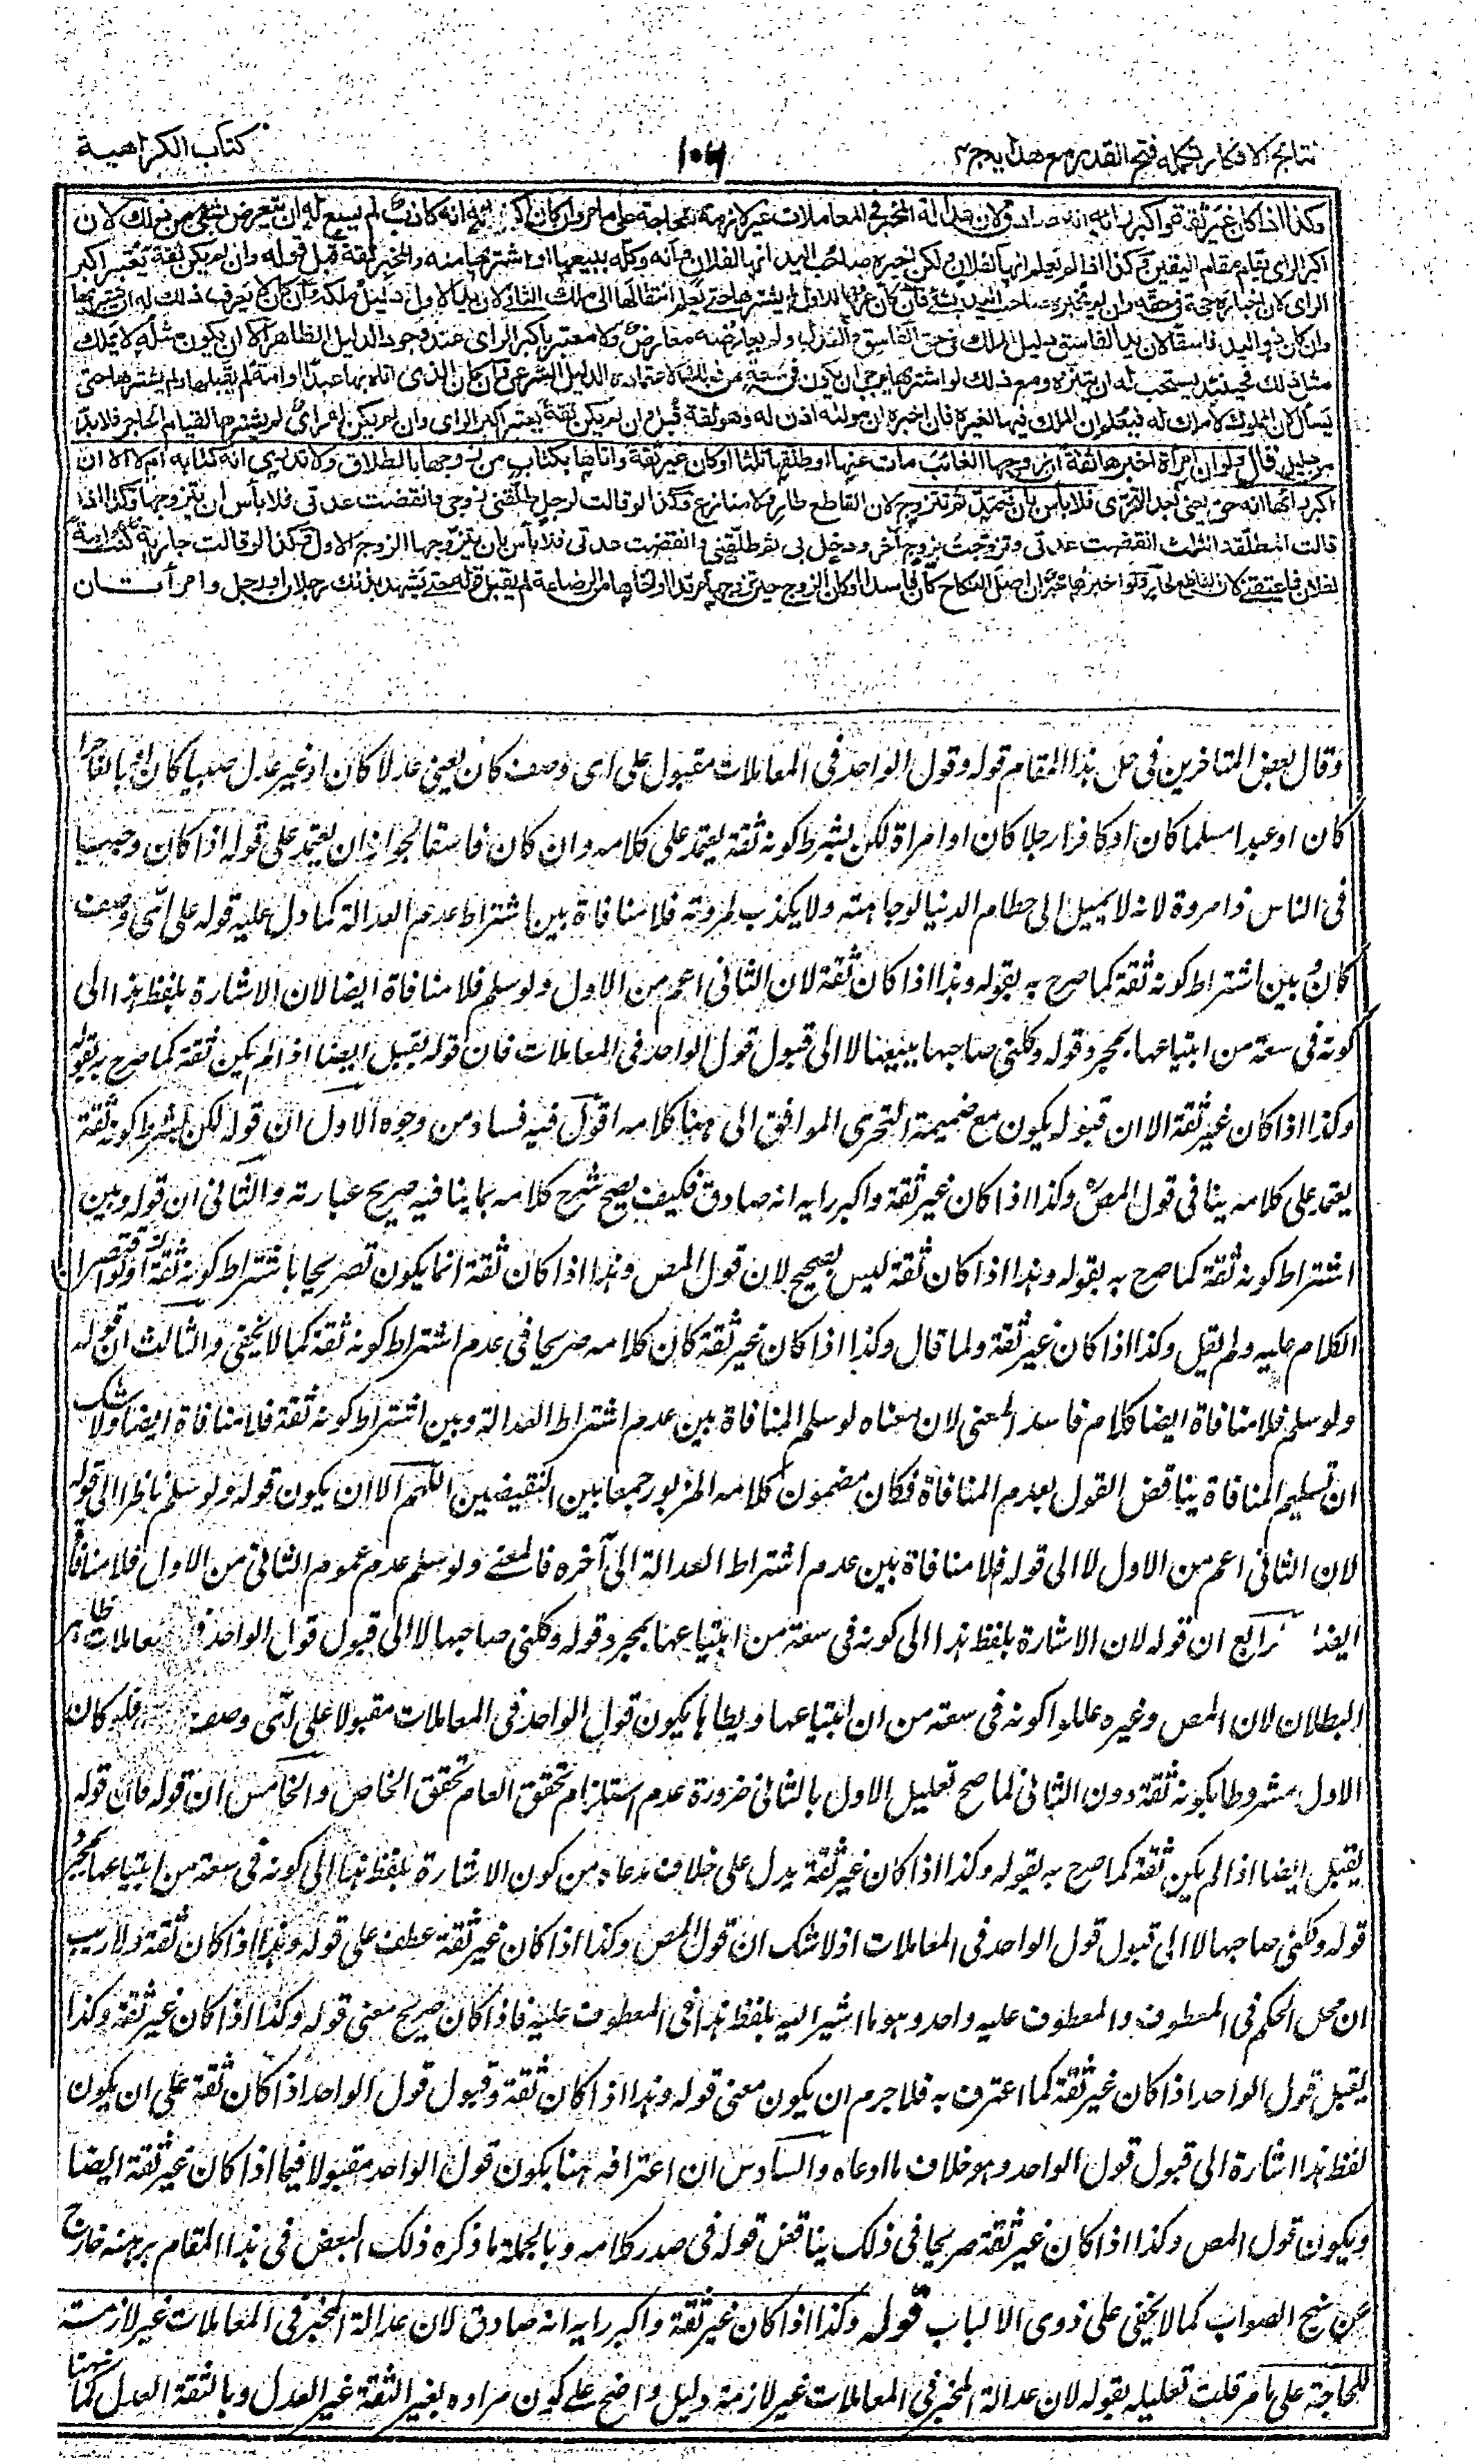 نتائج الافكار تكمله فتح القدير مع هدايه ج ٤
١٠٦
كتاب الكراهية
وكذا اذا كان غير ثقة واكبر رأيه انه صادق لان عدالة المخبر في المعاملات غير لازمة للحاجة على ما مر وان كان اكبر رأيه انه كاذب لم يسع له ان يتعرض بشئ من ذلك لان
اكبر الرأى يقام مقام اليقين وكذا اذا لم يعلم انها لفلان ولكن اخبره صاحب اليد انها لفلان وانه وكله ببيعها او اشتراها منه والمخبر ثقة قبل قوله وان لم يكن ثقة يعتبر اكبر
الرأى لان اخباره حجة فى حقه وان لم يخبره صاحب اليد بشئ فان كان عرفها للاول لم يشترها حتى يعلم انتقالها الى ملك الثانى لان يد الاول دليل ملكه وان كان لا يعرف ذلك له ان يشتريها
وان كان ذو اليد فاسقا لان يد الفاسق دليل الملك فى حق الفاسق والعدل ولم يعارضه معارض ولا معتبر باكبر الرأى عند وجود الدليل الظاهر الا ان يكون مثله لا يملك
مثل ذلك فحينئذ يستحب له ان يتنزه ومع ذلك لو اشتراها يرجى ان يكون فى سعة من ذلك لاعتماده الدليل الشرعى وان كان الذى اتاه بها عبدا او امة لم يقبلها ولم يشترها حتى
يسأل لان المملوك لا ملك له فيعلم ان الملك فيها لغيره فان اخبره ان مولاه اذن له وهو ثقة قبل وان لم يكن ثقة يعتبر اكبر الرأى وان لم يكن له رأى لم يشترها لقيام الحاجر فلابد
من دليل قال ولو ان امرأة اخبرها ثقة ان زوجها الغائب مات عنها او طلقها ثلثا او كان غير ثقة واتاها بكتاب من زوجها بالطلاق ولا تدرى انه كتابه ام لا الا ان
اكبر رأيها انه حق يعنى بعد التحرى فلا بأس بان تعتد ثم تتزوج لان القاطع طارٍ ولا منازع وكذا لو قالت لرجل طلقنى زوجى وانقضت عدتى فلا بأس ان يتزوجها وكذا اذا
قالت المطلقة الثلث انقضت عدتى وتزوجت بزوج آخر ودخل بى ثم طلقنى وانقضت عدتى فلا بأس بان يتزوجها الزوج الاول وكذا لو قالت جارية كنت امة
لفلان فاعتقنى لان القاطع طارٍ ولو اخبرها مخبر ان اصل النكاح كان فاسدا او كان الزوج حين تزوجها مرتدا او اخاها من الرضاعة لم يقبل قوله حتى يشهد بذلك رجلان او رجل وامرأتان
وقال بعض المتاخرين فى حل هذا المقام قوله وقول الواحد فى المعاملات مقبول على اى وصف كان يعنى عدلا كان او غير عدل صبيا كان او بالغا حرا
كان او عبدا مسلما كان او كافرا رجلا كان او امراة لكن بشرط كونه ثقة يعتمد على كلامه وان كان فاسقا لجواز ان يعتمد على قوله اذا كان وجيها
فى الناس ذا مروة لانه لا يميل الى حطام الدنيا لوجاهته ولا يكذب لمروته فلا منافاة بين اشتراط عدم العدالة كما دل عليه قوله على اىّ وصف
كان وبين اشتراط كونه ثقة كما صرح به بقوله وهذا اذا كان ثقة لان الثانى اعم من الاول ولو سلم فلا منافاة ايضا لان الاشارة بلفظ هذا الى
كونه فى سعة من ابتياعها بمجرد قوله وكلنى صاحبها ببيعها لا الى قبول قول الواحد فى المعاملات فان قوله يقبل ايضا اذا لم يكن ثقة كما صرح به بقوله
وكذا اذا كان غير ثقة الا ان قبوله يكون مع ضميمة التحرى الموافق الى هنا كلامه اقول فيه فساد من وجوه الاول ان قوله لكن بشرط كونه ثقة
يعتمد على كلامه ينافى قول المص وكذا اذا كان غير ثقة واكبر رايه انه صادق فكيف يصح شرح كلامه بما ينافيه صريح عبارته والثانى ان قوله وبين
اشتراط كونه ثقة كما صرح به بقوله وهذا اذا كان ثقة ليس بصحيح لان قول المص وهذا اذا كان ثقة انما يكون تصريحا باشتراط كونه ثقة ان لو اقتصر
الكلام عليه ولم يقل وكذا اذا كان غير ثقة ولما قال وكذا اذا كان غير ثقة كان كلامه صريحا فى عدم اشتراط كونه ثقة كما لا يخفى والثالث ان قوله
ولو سلم فلا منافاة ايضا كلام فاسد المعنى لان معناه لو سلم المنافاة بين عدم اشتراط العدالة وبين اشتراط كونه ثقة فلا منافاة ايضا ولا شك
ان تسليم المنافاة يناقض القول بعدم المنافاة فكان مضمون كلامه المزبور جمعا بين النقيضين اللهم الا ان يكون قوله ولو سلم ناظرا الى قوله
لان الثانى اعم من الاول لا الى قوله فلا منافاة بين عدم اشتراط العدالة الى آخره فالمعنى ولو سلم عدم عموم الثانى من الاول فلا منافاة
ايضا والرابع ان قوله لان الاشارة بلفظ هذا الى كونه فى سعة من ابتياعها بمجرد قوله وكلنى صاحبها لا الى قبول قول الواحد فى المعاملات ظاهر
البطلان لان المص وغيره عللوا كونه فى سعة من ان ابتياعها ويطاها بكون قول الواحد فى المعاملات مقبولا على اىّ وصف فلو كان
الاول مشروطا بكونه ثقة دون الثانى لما صح تعليل الاول بالثانى ضرورة عدم استلزام تحقق العام تحقق الخاص والخامس ان قوله فان قوله
يقبل ايضا اذا لم يكن ثقة كما صرح به بقوله وكذا اذا كان غير ثقة يدل على خلاف مدعاه من كون الاشارة بلفظ هذا الى كونه فى سعة من ابتياعها بمجرد
قوله وكلنى صاحبها لا الى قبول قول الواحد فى المعاملات اذ لا شك ان قول المص وكذا اذا كان غير ثقة عطف على قوله وهذا اذا كان ثقة ولا ريب
ان محل الحكم فى المعطوف والمعطوف عليه واحد وهو ما اشير اليه بلفظ هذا فى المعطوف عليه فاذا كان صريح معنى قوله وكذا اذا كان غير ثقة وكذا
يقبل قول الواحد اذا كان غير ثقة كما اعترف به فلا جرم ان يكون معنى قوله وهذا اذا كان ثقة وقبول قول الواحد اذا كان ثقة على ان يكون
لفظ هذا اشارة الى قبول قول الواحد وهو خلاف ما ادعاه والسادس ان اعترافه هنا بكون قول الواحد مقبولا فيما اذا كان غير ثقة ايضا
وبكون قول المص وكذا اذا كان غير ثقة صريحا فى ذلك يناقض قوله فى صدر كلامه وبالجملة ما ذكره ذلك البعض فى هذا المقام برمته خارج
عن نهج الصواب كما لا يخفى على ذوى الالباب قوله وكذا اذا كان غير ثقة واكبر رايه انه صادق لان عدالة المخبر فى المعاملات غير لازمة
للحاجة على ما مر قلت تعليله بقوله لان عدالة المخبر فى المعاملات غير لازمة دليل واضح على كون مراده بغير الثقة غير العدل وبالثقة العدل كما